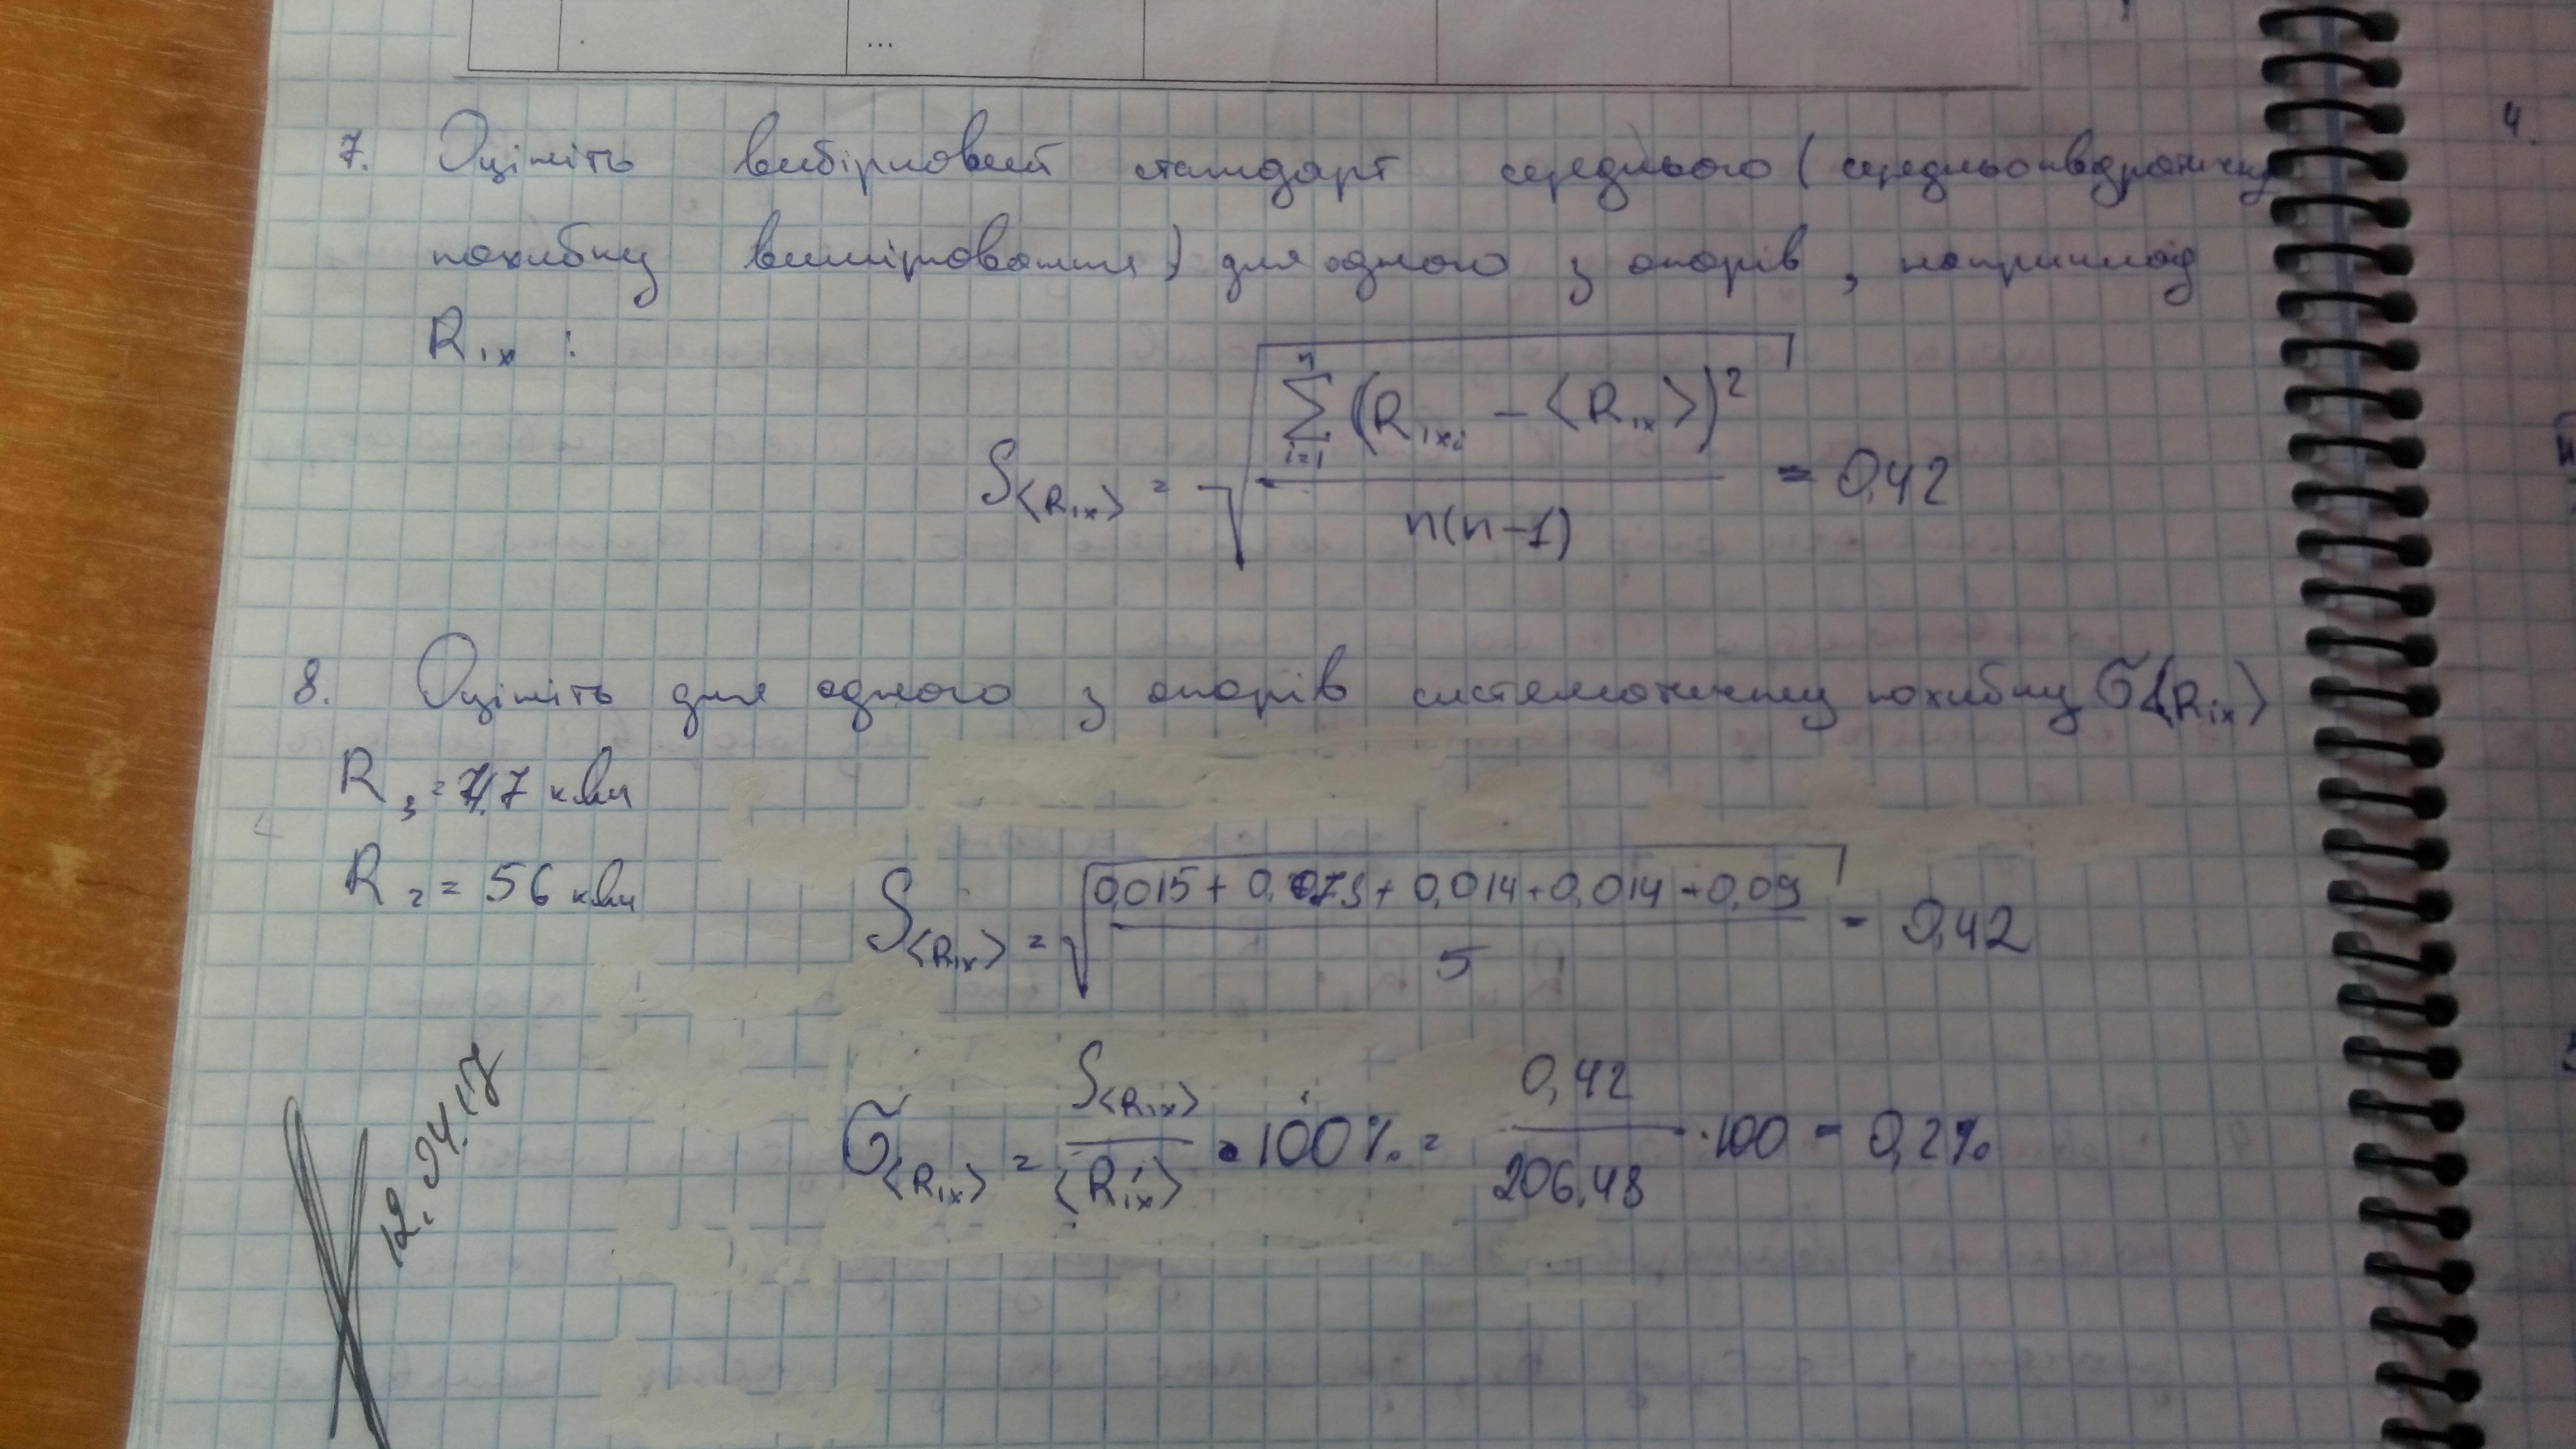 ...
7. Оцініть вибірковий стандарт середнього (середньоквадратичну
похибку вимірювання) для одного з опорів, наприклад
R₁ₓ :
S⟨R₁ₓ⟩ = √(∑ᵢ₌₁ⁿ (R₁ₓᵢ − ⟨R₁ₓ⟩)² / n(n−1)) = 0,42
8. Оцініть для одного з опорів систематичну похибку σ⟨R₁ₓ⟩
R₃ = 4,7 кОм
R₂ = 56 кОм
S⟨R₁ₓ⟩ = √((0,015 + 0,073 + 0,014 + 0,014 + 0,09) / 5) = 0,42
σ⟨R₁ₓ⟩ = S⟨R₁ₓ⟩ / ⟨R₁ₓ⟩ · 100% = 0,42 / 206,48 · 100 = 0,2%
12.04.17
4.